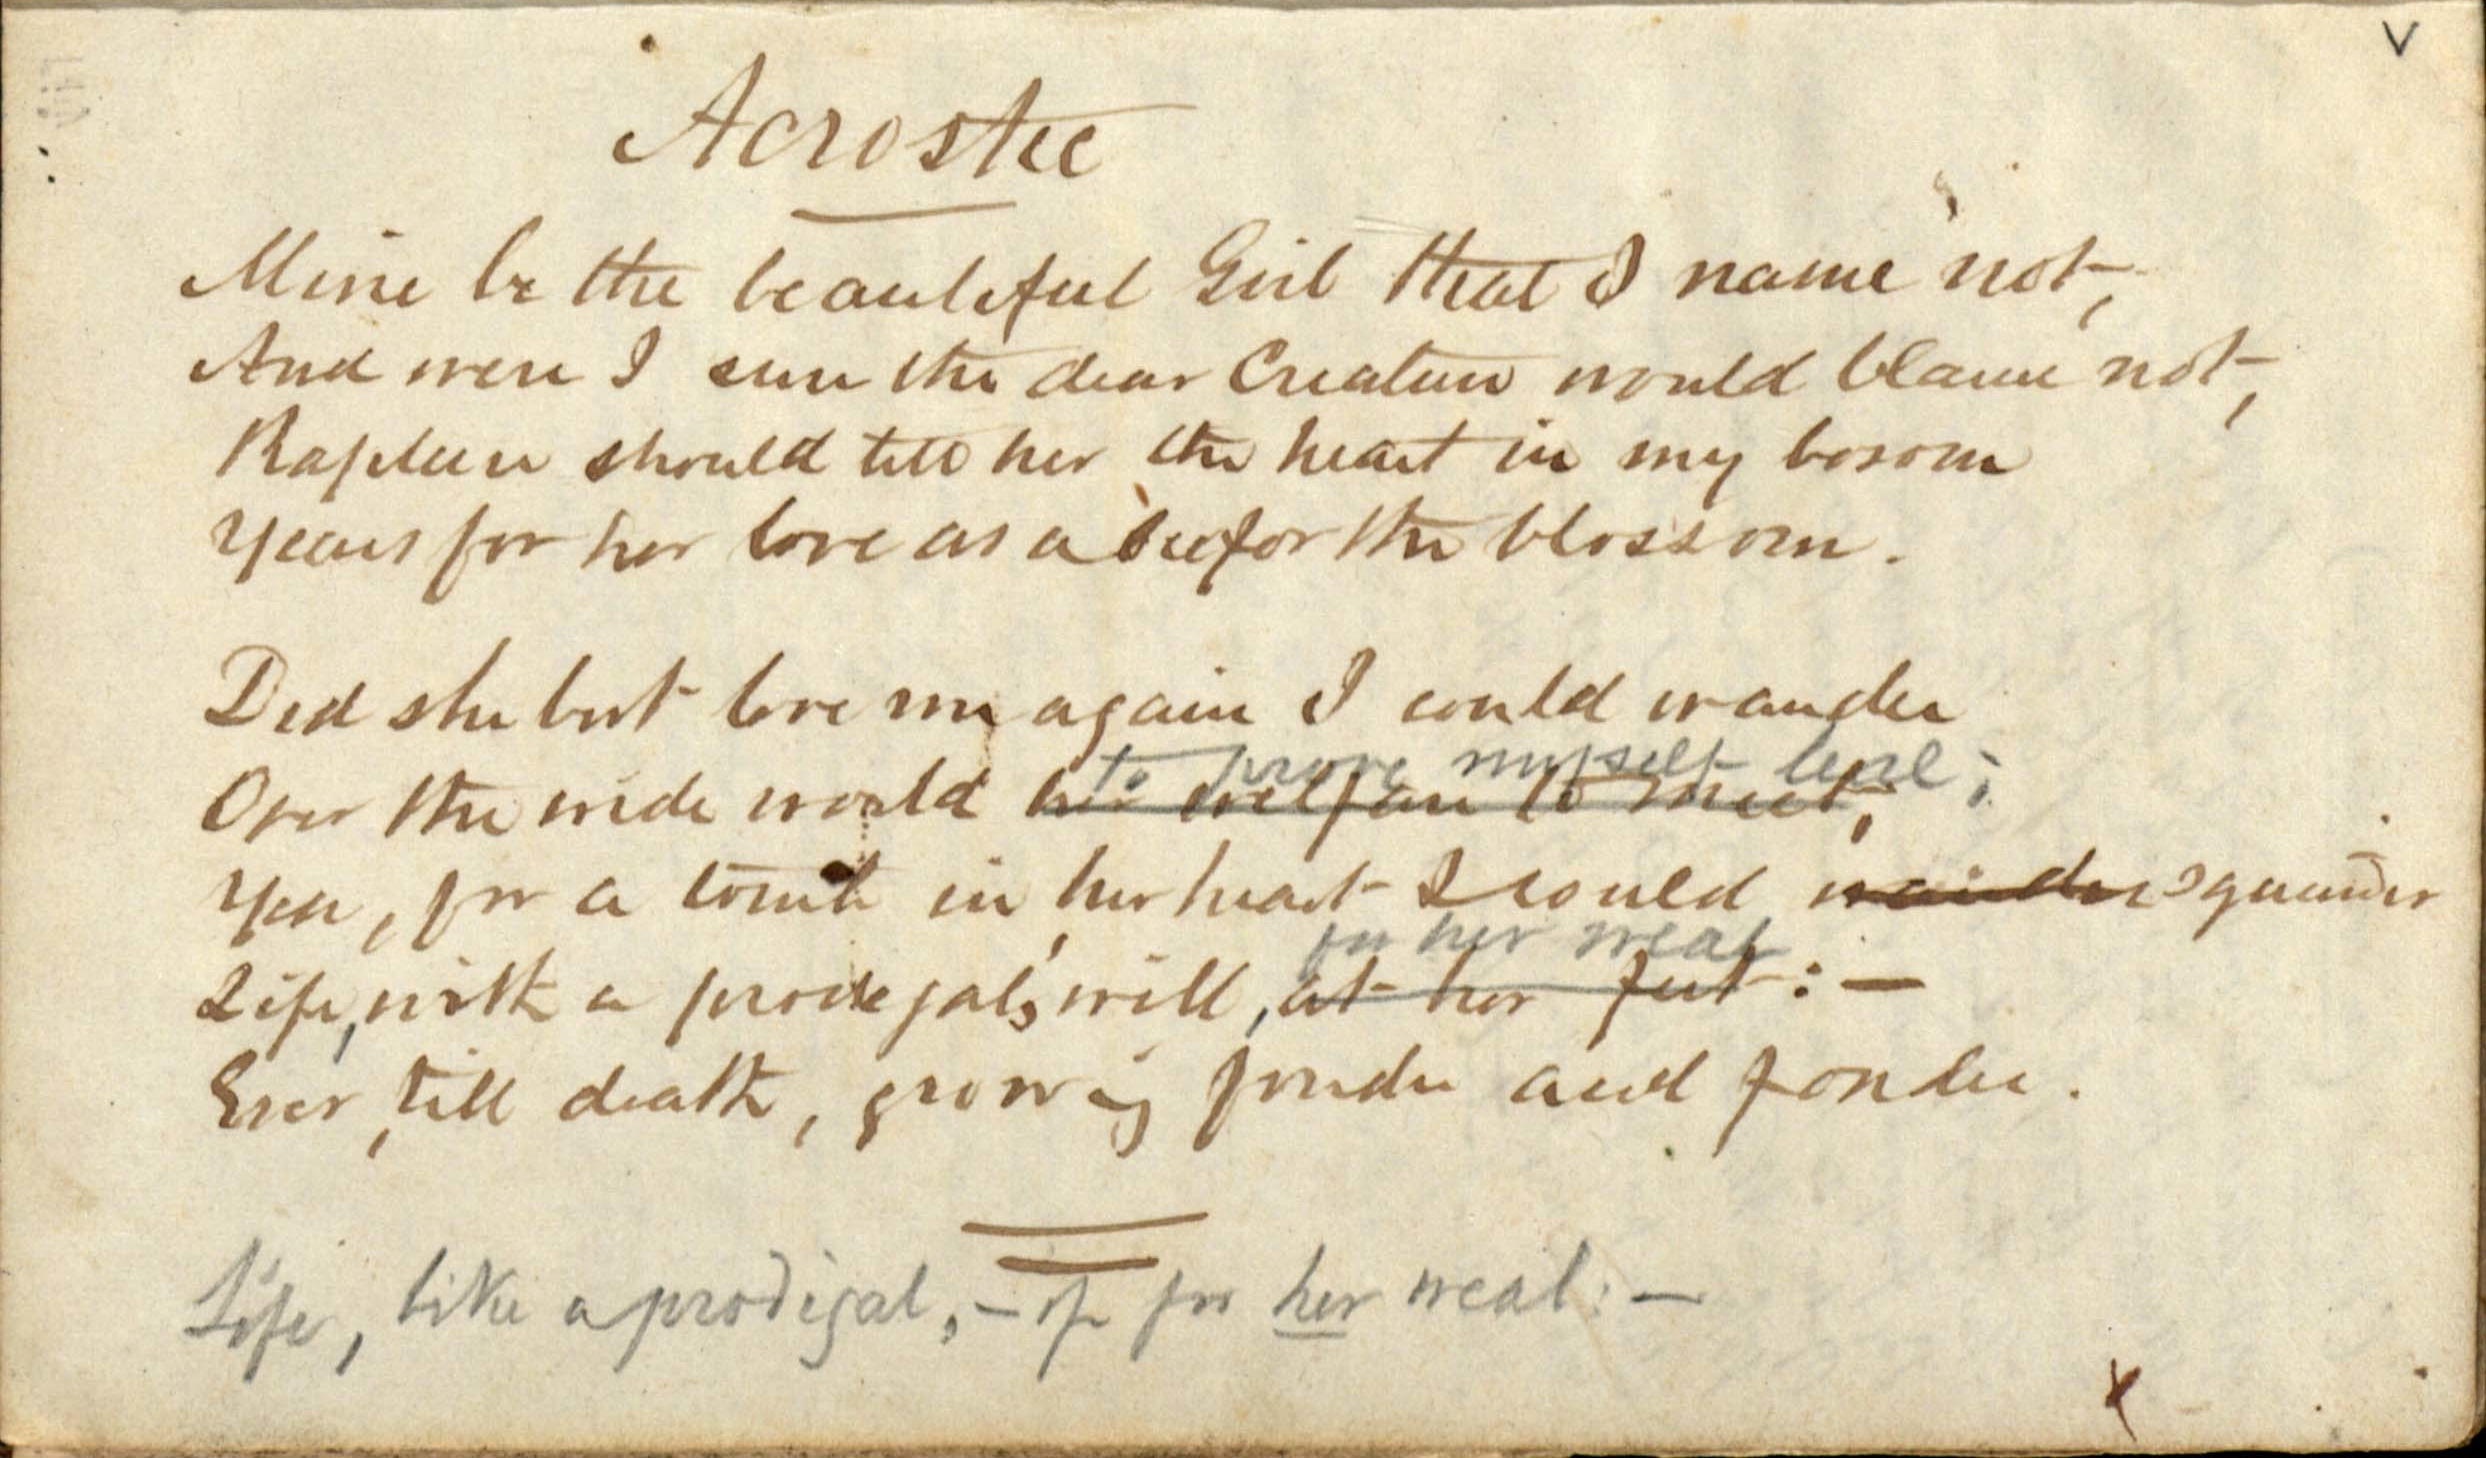 Acrostic
Mine be the beautiful Girl that I name not,
And were I sure the dear Creature would blame not,
Rapture should tell her the heart in my bosom
Years for her love as a bee for the blossom.
Did she but love me again I could wander
to prove myself leal;
Over the wide world her welfare to meet;
Yea, for a tomb in her heart I could wander squander
for her weal
Life, with a prodigal's will, at her feet: —
Ever, till death, growing fonder and fonder.
Life, like a prodigal, — if for her weal: —